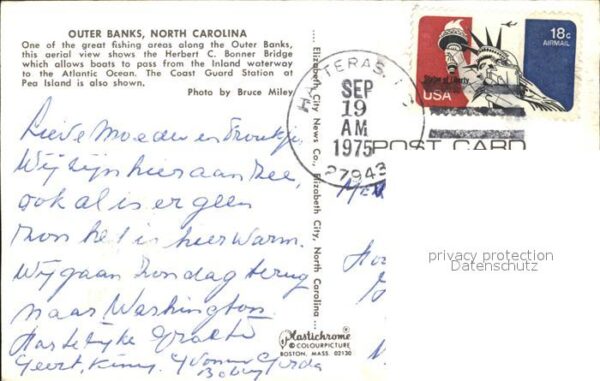 OUTER BANKS, NORTH CAROLINA
One of the great fishing areas along the Outer Banks,
this aerial view shows the Herbert C. Bonner Bridge
which allows boats to pass from the Inland waterway
to the Atlantic Ocean. The Coast Guard Station at
Pea Island is also shown.
Photo by Bruce Miley
Lieve Moeder en Froukje,
Wij zijn hier aan zee,
ook al is er geen
zon het is hier warm.
Wij gaan Zondag terug
naar Washington
Hartelijke
Geert, Kinny, Yvonne Gerda
Bobby
Elizabeth City News Co., Elizabeth City, North Carolina
Plastichrome
® COLOURPICTURE
BOSTON, MASS. 02130
HATTERAS,
SEP
19
AM
1975
27943
18c
AIRMAIL
Statue of Liberty
USA
POST CARD
privacy protection
Datenschutz